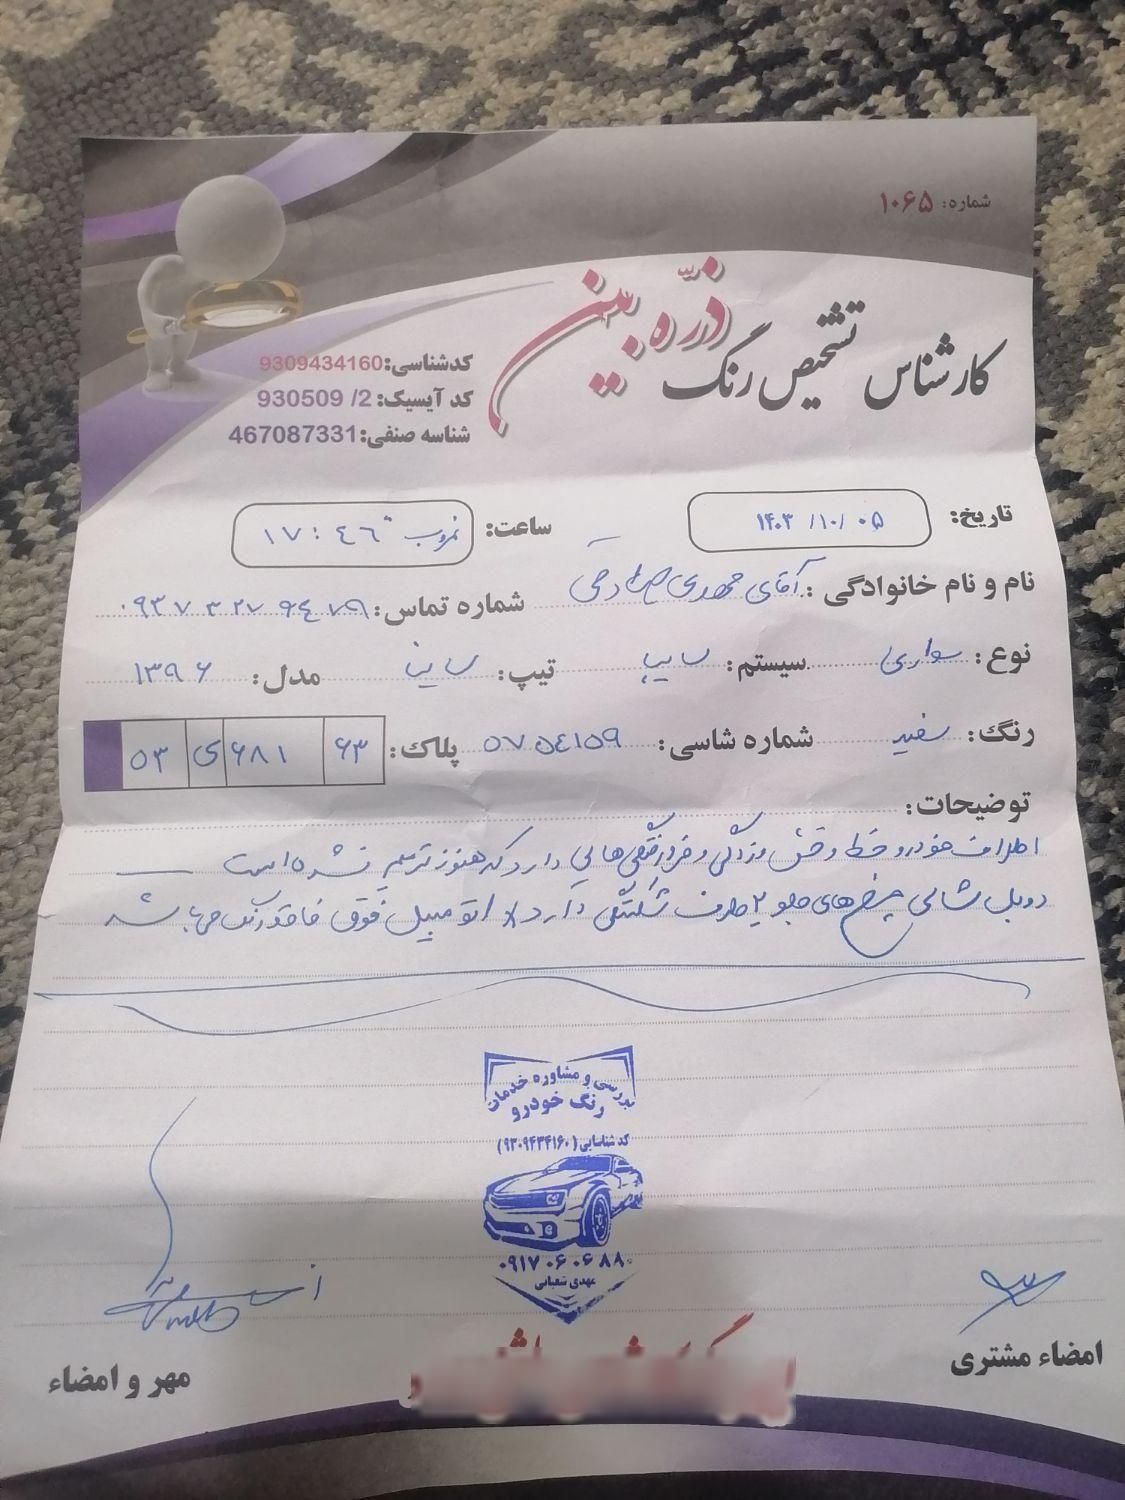 شماره: ۱۰۶۵
کارشناس تشخیص رنگ ذرّه بین
کدشناسی:9309434160
کد آیسیک: 2/ 930509
شناسه صنفی:467087331
تاریخ: ۱۴۰۳/۱۰/۰۵
ساعت: ۱۷:۴۶
نام و نام خانوادگی: آقای مهدی
شماره تماس: ۰۹۳۷۳۲۷۶۴۷۹
نوع: سواری سیستم: سایپا تیپ: ساینا مدل: ۱۳۹۶
رنگ: سفید شماره شاسی: ۵۷۵۴۱۵۹ پلاک: ۶۳ ۶۸۱ ی ۵۳
توضیحات:
اطراف خودرو خط و خش و زدگی و فرورفتگی هایی دارد که هنوز ترمیم نشده است
دوبل شاسی چرخ های جلو ۲ طرف شکستگی دارد * اتومبیل فوق فاقد رنگ می باشد
بررسی و مشاوره خدمات
رنگ خودرو
کد شناسایی (۹۳۰۹۴۳۴۱۶۰)
۰۹۱۷۰۶۰۶۸۸۰
مهدی شعبانی
امضاء مشتری
مهر و امضاء